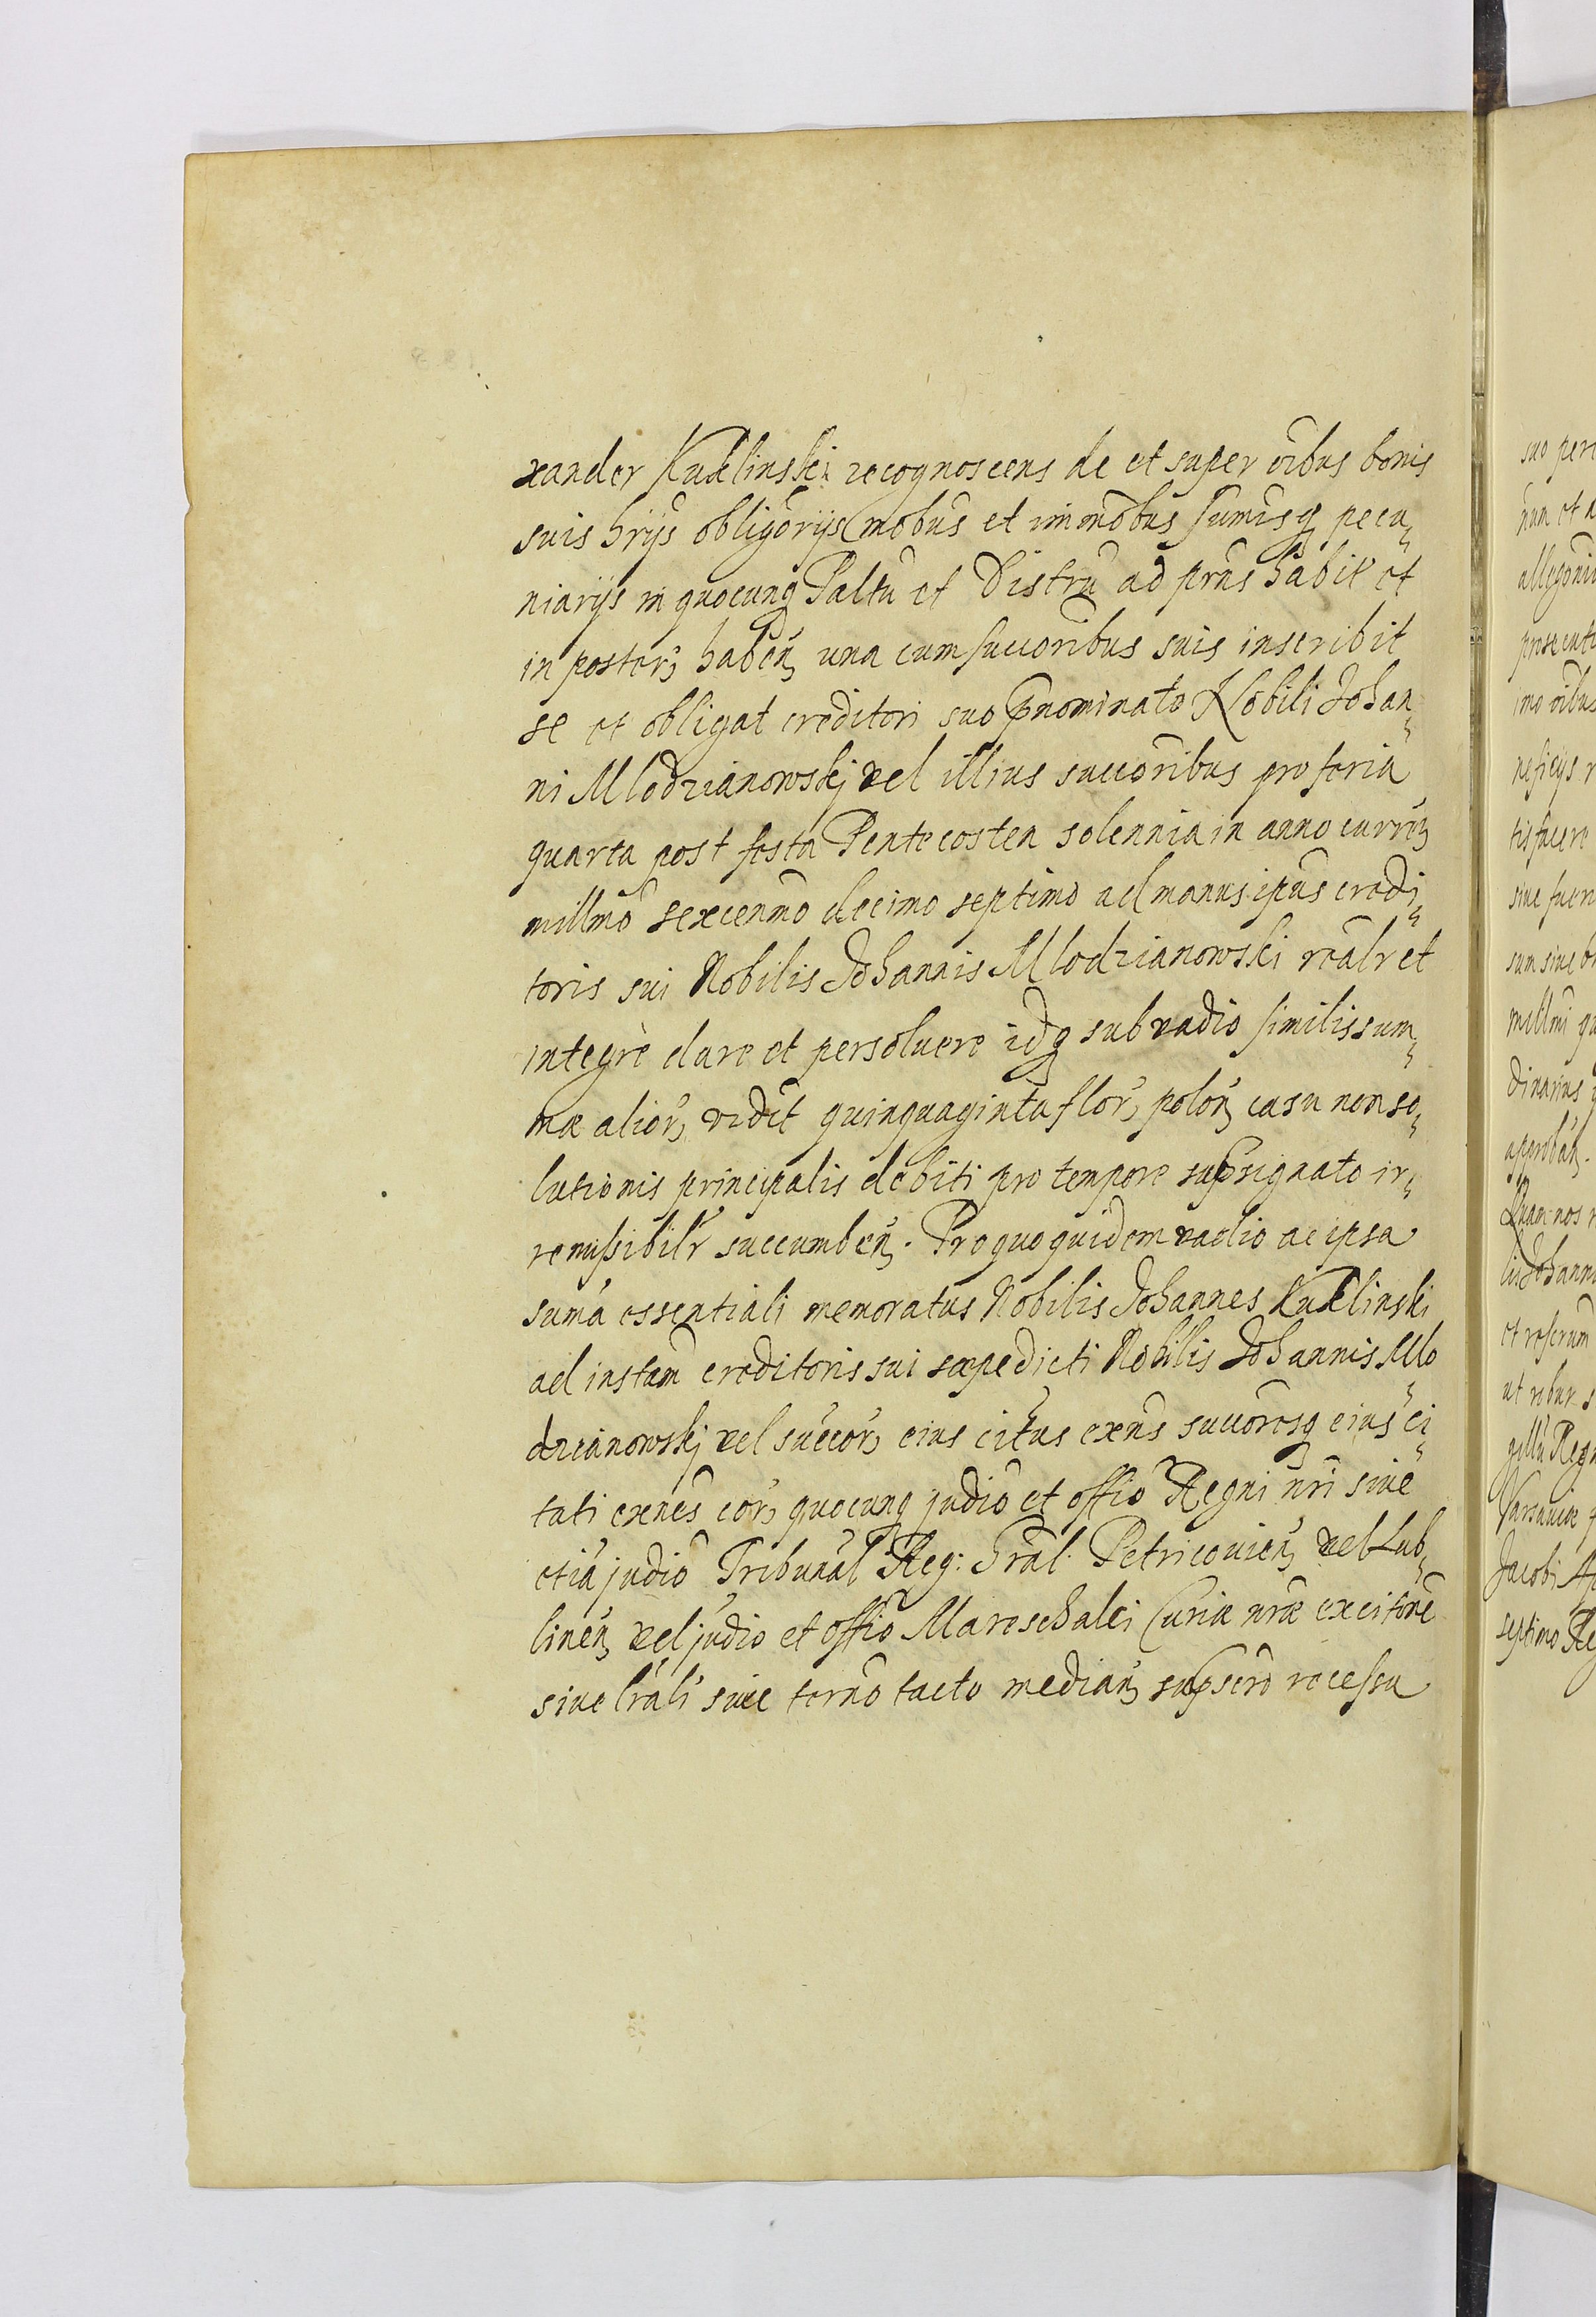 xander Kuklinski recognoscens de et super oibus bonis
suis hrijs obligorijs mobus et immobus sumisq pecu
niarijs in quocunq Paltu et Distru ad prns habit et
in poster habén una cum succoribus suis inscribit
se et obligat creditori suo pnominato Nobili Johan
ni Mlodzianowskj vel illius succoribus pro feria
quarta post festa Pentecosten solennia in anno currén
millmo sexcenmo decimo septimo ad manus ipsius credi
toris sui Nobilis Johannis Mlodzianowski realr et
integrè dare et persoluere idq sub vadio similis sum
mæ alior vidèt quinquaginta flor polon casu non so
lutionis principalis debiti pro tempore suprsignato ir
remissibilr succumbén. Pro quo quidem vadio ac ipsa
suma essentiali memoratus Nobilis Johannes Kuklinski
ad instam creditoris sui sæpedicti Nobilis Johannis Mlo
dzianowskj vel succor eius citus exns succoresq eius ci
tati exnes cor quocunq judio et offio Regni nri siue
etia judio Tribunal Reg: Gral. Petricouien vel Lub
linén vel judio et offio Mareschalci Curiæ nræ ex citone
siue lrali siue terno tacto median supscro recessu

suo per
num et
allegoni
prosecuti
imo oibus
neficijs
tisfacere
siue fuer
sum siue
millmi
dinarius
approbán.
Quam nos
lis Johanni
et reserum
ut robur s
gillu Regn
Varsauiæ
Jacobi Ap
septimo Re